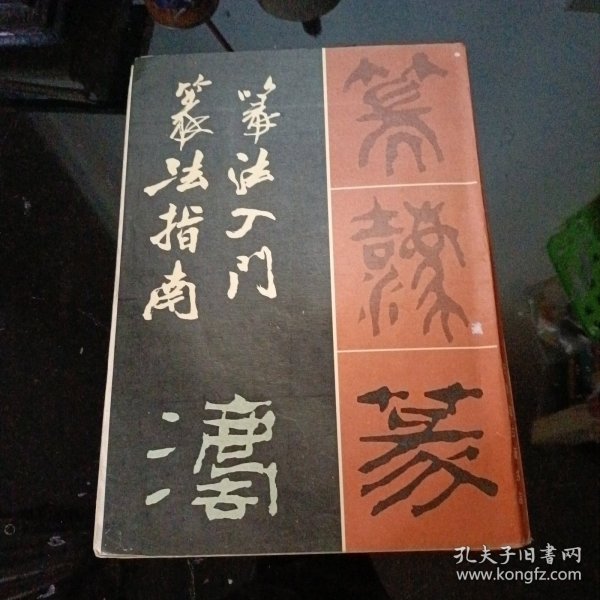 篆法入门
篆法指南
篆
孔夫子旧書网
www.kongfz.com